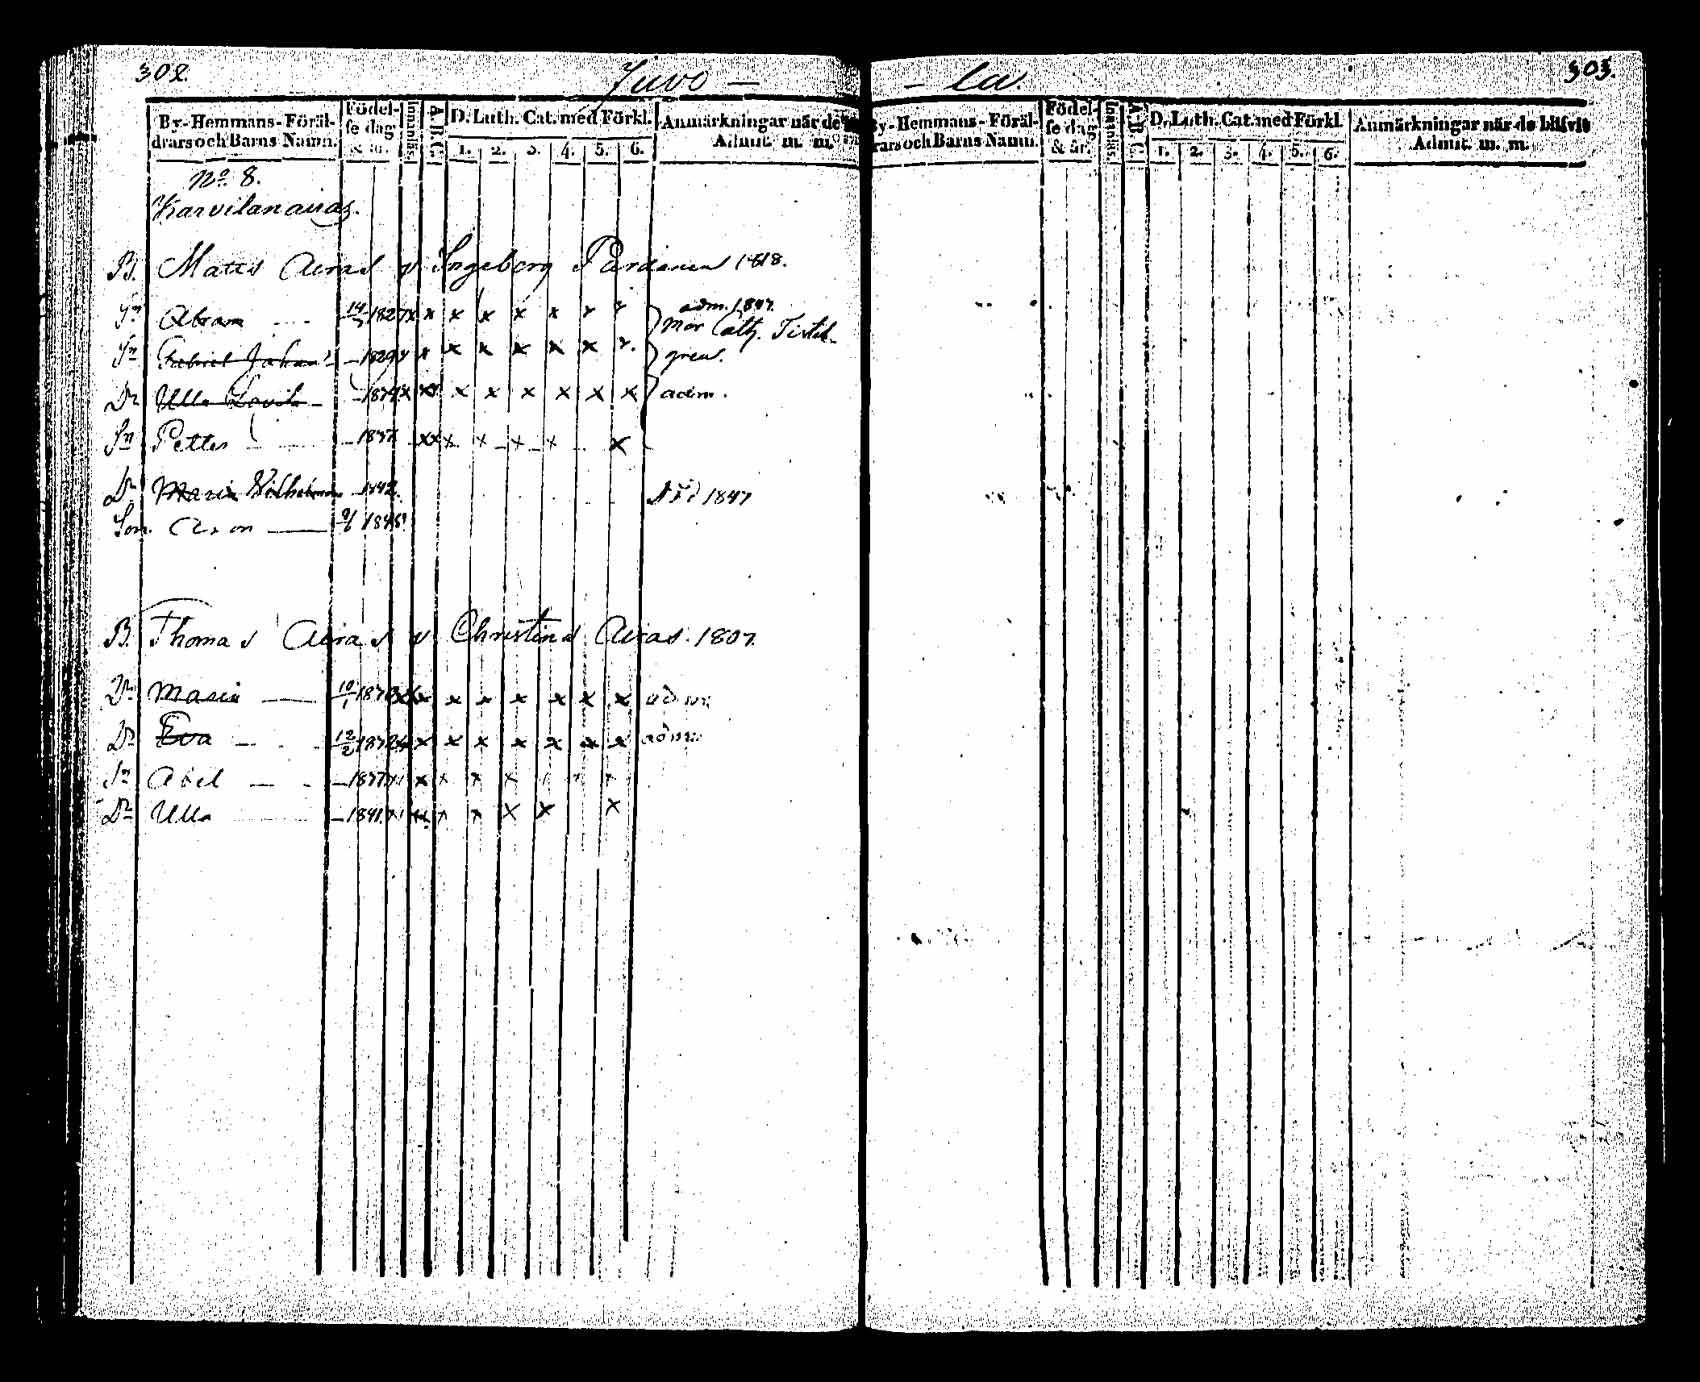 302.
Juvo —
By-Hemmans-Föräl-
drars och Barns Namn.
Födel-
se dag
& år.
Innanläs.
A. B. C.
D. Luth. Cat. med Förkl.
1. 2. 3. 4. 5. 6.
Anmärkningar när de
Admit. m. m.
No 8.
Karvilanairas.
B. Matts Airas o Ingeborg Pardanen 1818.
Sn Abram 1827 x x x x x x adm. 1847.
mor Cath. Tistel-
Sn Gabriel Johan 1829 x x x x x x gren.
Dr Ulla Lovisa x x x x x x x x adm.
Sn Petter — 1837 x x x x x x x
Dr Maria Wilhelmina 1842 Död 1847
Son. Aron —
B. Thomas Airas o Christina Airas. 1807.
Dr Maria — x x x x x x x adm:
Dr Eva — 12/2 x x x x x x x adm:
Sn Abel — — 1837 x x x x
Dr Ulla — 1841. x x x x x
— la.
303.
By-Hemmans-Föräl-
drars och Barns Namn.
Födel-
se dag
& år.
Innanläs.
A. B. C.
D. Luth. Cat. med Förkl.
1. 2. 3. 4. 5. 6.
Anmärkningar när de blifvit
Admit. m. m.